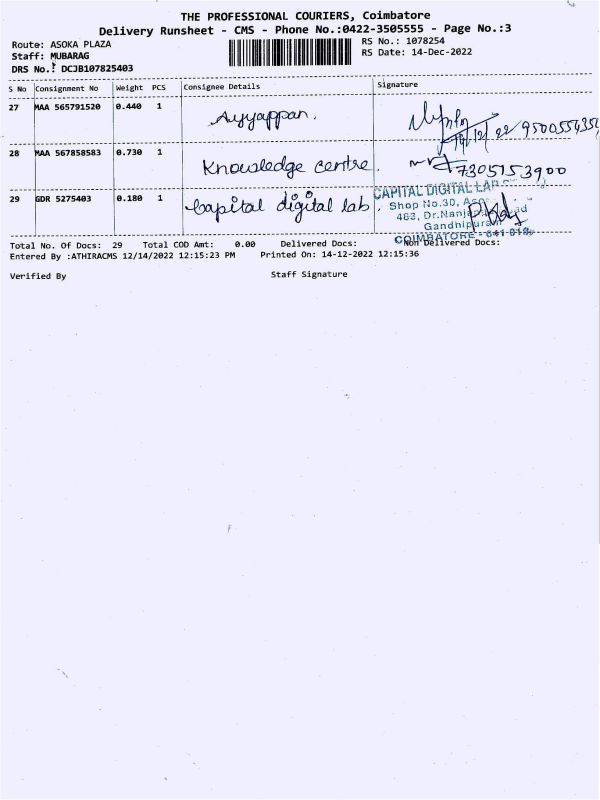 THE PROFESSIONAL COURIERS, Coimbatore
Delivery Runsheet - CMS - Phone No.:0422-3505555 - Page No.:3
Route: ASOKA PLAZA
Staff: MUBARAG
DRS No.: DCJB107825403
RS No.: 1078254
RS Date: 14-Dec-2022
S No Consignment No Weight PCS Consignee Details Signature
27 MAA 565791520 0.440 1 Ayyappan.
14/12/22 9500554354
28 MAA 567858583 0.730 1 Knowledge centre.
7305153900
29 GDR 5275403 0.180 1 Capital digital lab.
CAPITAL DIGITAL LAB
Shop No.30,
463, Dr.
Gandhipuram
COIMBATORE - 641 018.
Total No. Of Docs: 29 Total COD Amt: 0.00 Delivered Docs: Non Delivered Docs:
Entered By :ATHIRACMS 12/14/2022 12:15:23 PM Printed On: 14-12-2022 12:15:36
Verified By Staff Signature